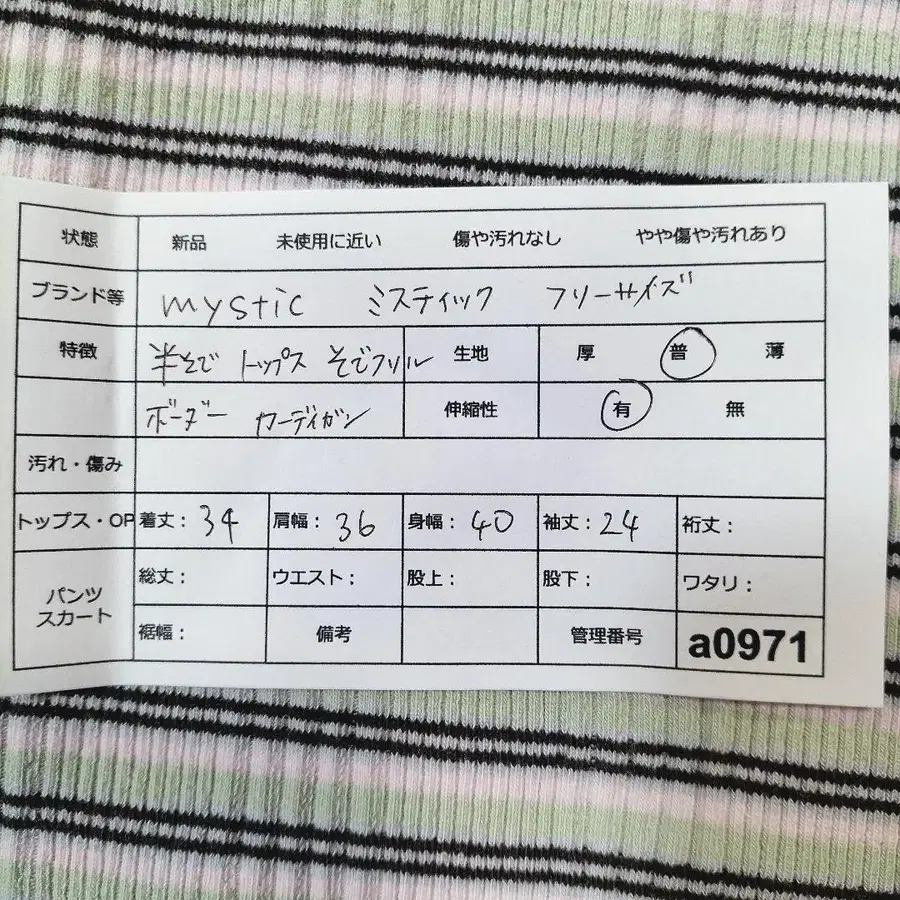 状態 新品 未使用に近い 傷や汚れなし やや傷や汚れあり
ブランド等 mystic ミスティック フリーサイズ
特徴 半そで トップス そでフリル 生地 厚 普 薄
ボーダー カーディガン 伸縮性 有 無
汚れ・傷み
トップス・OP 着丈：34 肩幅：36 身幅：40 袖丈：24 裄丈：
パンツ スカート 総丈： ウエスト： 股上： 股下： ワタリ：
裾幅： 備考 管理番号 a0971